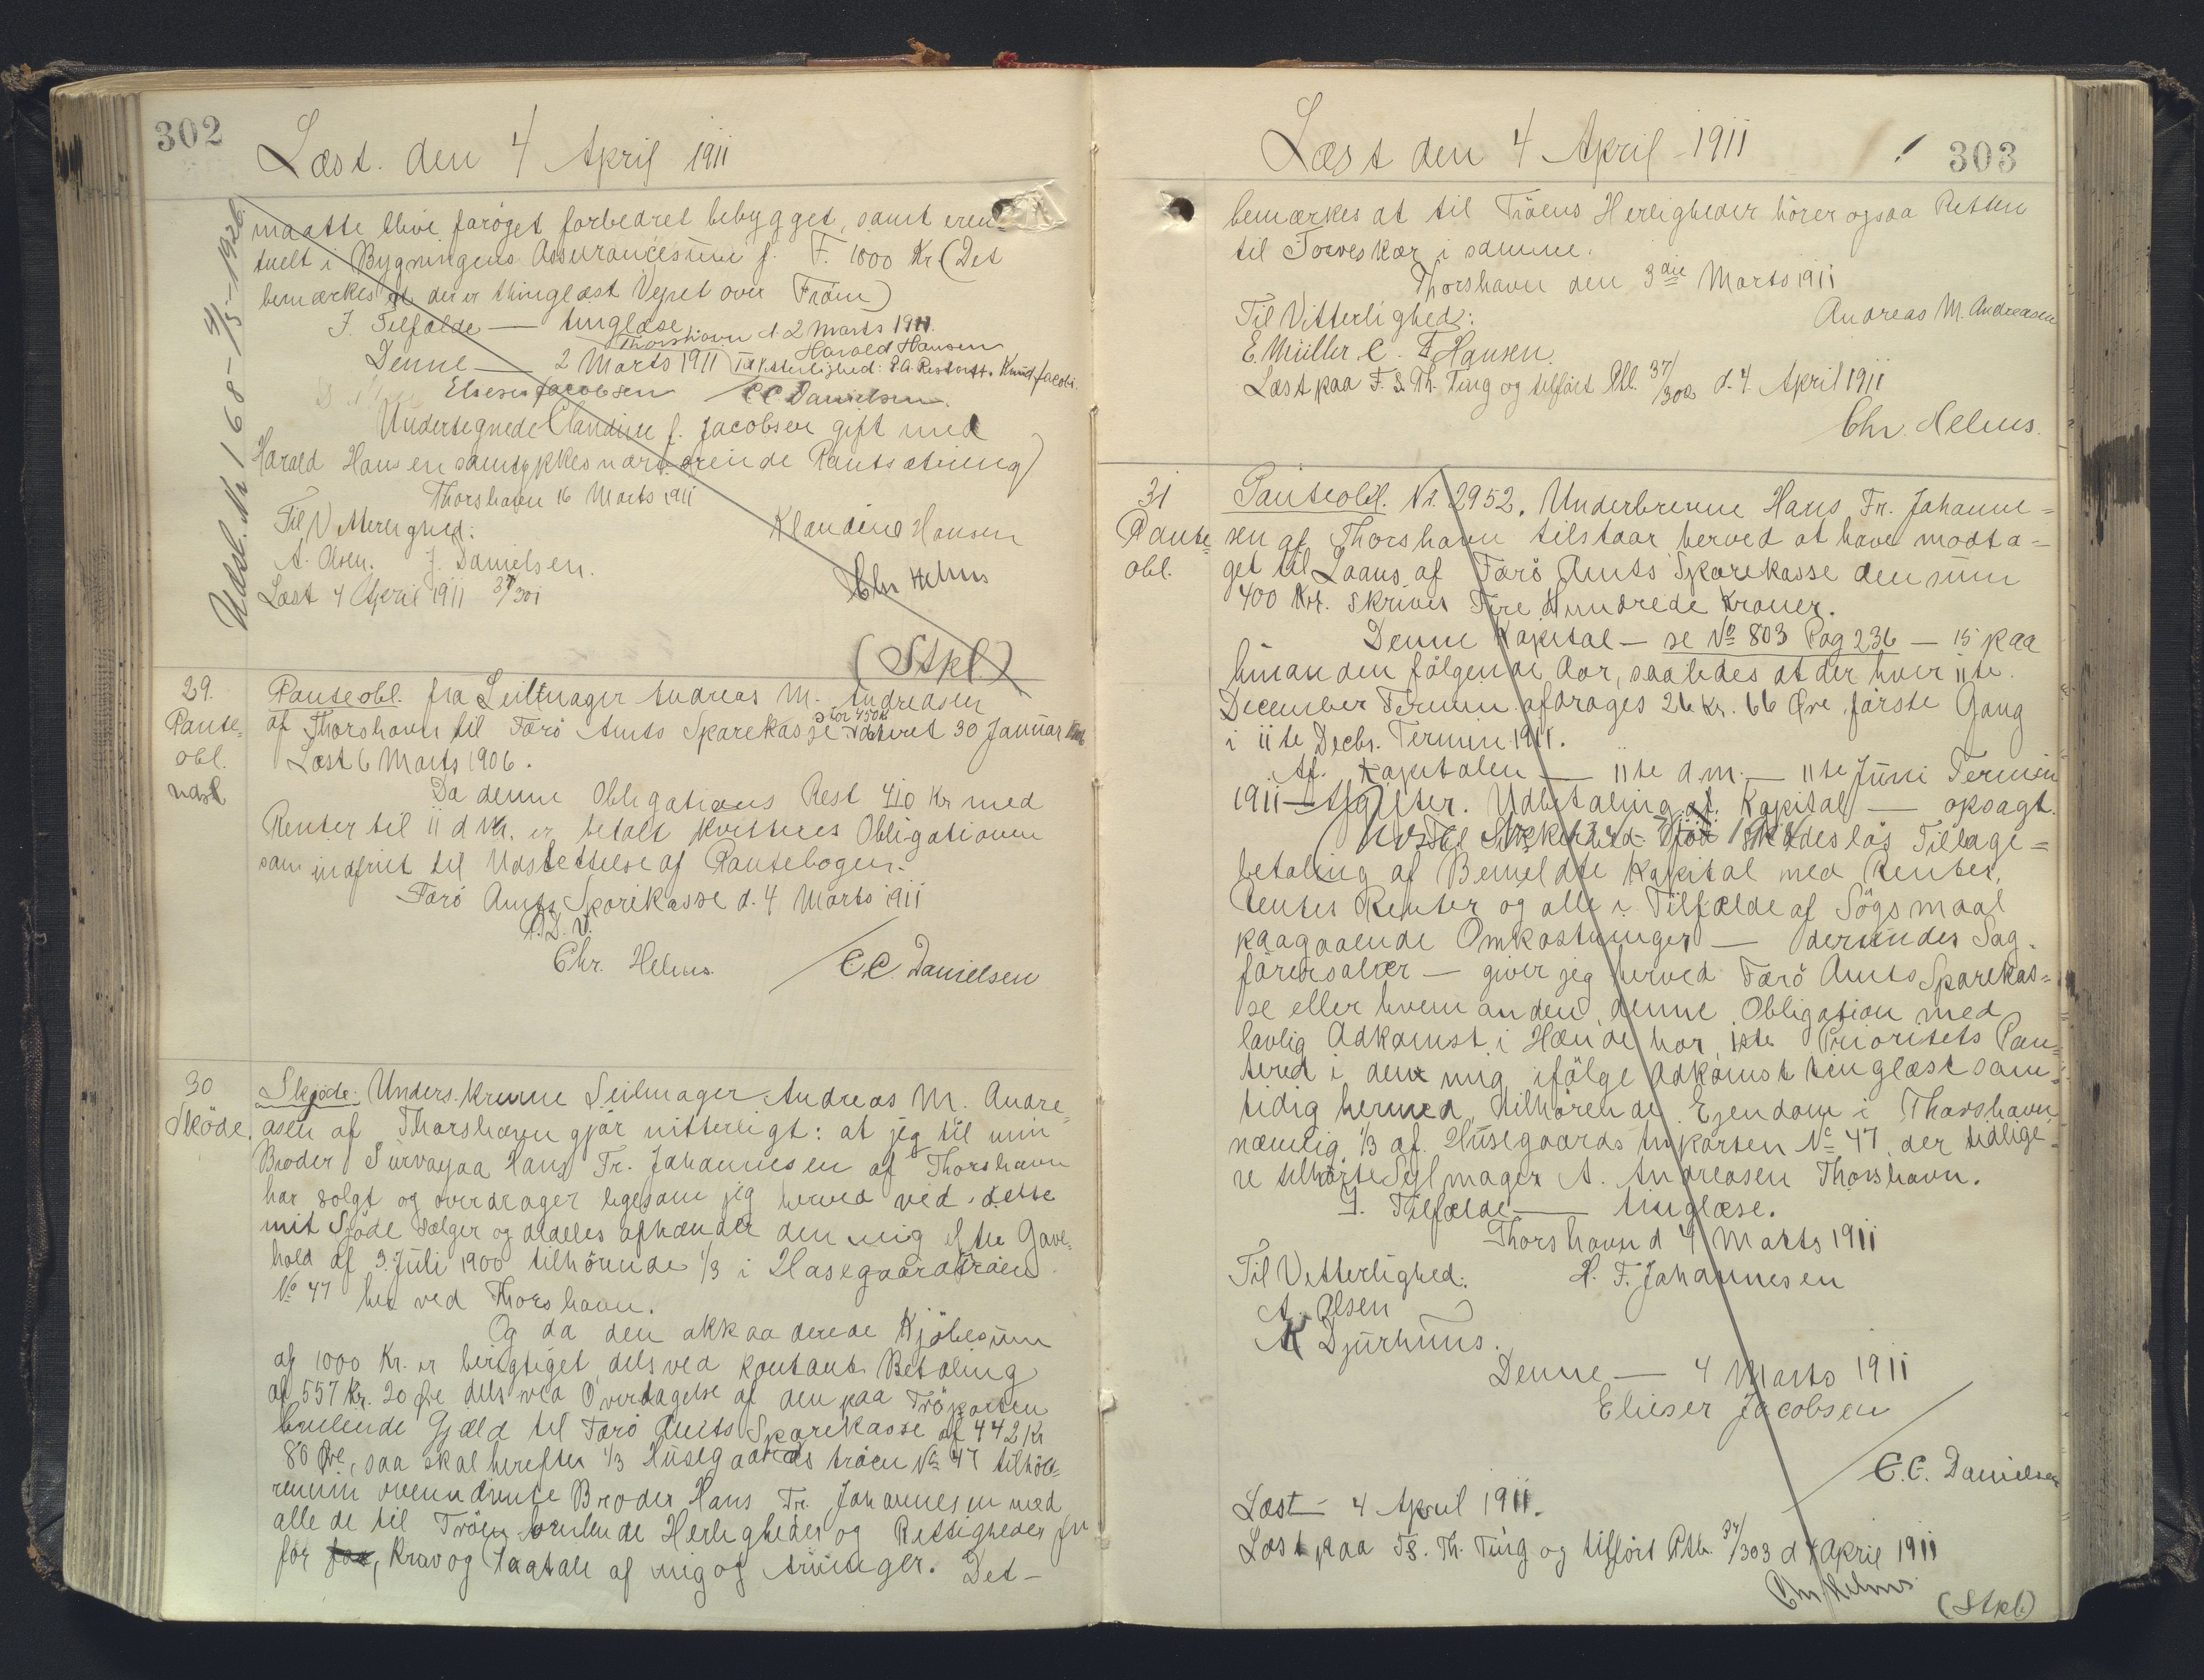 302
Læst. den 4 April 1911
Udsl. No 168 - 4/5 - 1926
maatte blive forøget forbedret bebygget, samt even
tuelt i Bygningens Assurancesum f. F. 1000 Kr (Det
bemærkes at der er thinglæst Vejret over Tröen)
J. Tilfælde — tinglæse
Thorshavn d 2 Marts 1911.
Harald Hansen
Denne — 2 Marts 1911 Til Vitterlighed: P.A. Restorff. Knud Jacobs.
Elieser Jacobsen / C C Danielsen.
Undertegnede Claudine f. Jacobsen gift med
Harald Hansen samtykkes nærværende Pantsætning
Thorshavn 16 Marts 1911
Til Vitterlighed:
Klaudine Hansen
A. Olsen. J. Danielsen.
Læst 4 April 1911 37/301
Chr Helms
(Stpl.)
29.
Pante=
obl.
udsl
Panteobl. fra Seilmager Andreas M. Andreasen
af Thorshavn til Færö Amts Sparekasse stor 450 Kr dateret 30 Januar
Læst 6 Marts 1906.
Da denne Obligations Rest 410 Kr med
Renter til 11 d Mr. er betalt kvitteres Obligationen
som indfriet til Udslettelse af Pantebogen.
Færö Amts Sparekasse d. 4 Marts 1911
P. D. V.
Chr. Helms. / C.C. Danielsen
30
Sköde.
Skjøde: Underskrevne Seilmager Andreas M. Andre=
asen af Thorshavn gjør vitterligt: at jeg til min
Broder Hans Fr. Johannesen af Thorshavn
har solgt og overdrager ligesom jeg herved ved dette
mit Sjöde sælger og aldeles afhænder den mig efter Gave=
hold af 3. Juli 1900 tilhörende 1/3 i Husegaardtröen
No 47 her ved Thorshavn.
Og da den akkaaderede Kjöbesum
af 1000 Kr. er berigtiget dels ved kontant Betaling
af 557 Kr. 20 Øre dels ved Overtagelse af den paa Tröparten
hvilende Gjæld til Færö Amts Sparekasse af 442 Kr
80 Øre, saa skal herefter 1/3 Husegaards tröen No 47 tilhöre
Broder Hans Fr. Johannesen med
alle de til Tröen hvilende Herligheder og Rettigheder fri
for Krav og Paatale af mig og Arvinger. Det —
303
Læst den 4 April - 1911
bemærkes at til Tröens Herligheder hörer ogsaa Retten
til Torveskær i samme.
Thorshavn den 3die Marts 1911
Til Vitterlighed:
Andreas M. Andreasen
E. Müller. C. F. Hansen.
Læst paa F. S. Th. Ting og tilfört Ptb. 37/302 d. 4 April 1911
Chr. Helms.
31
Pante=
obl.
Panteobl. Nr. 2952. Underskrevne Hans Fr. Johanne=
sen af Thorshavn tilstaar herved at have modta=
get til Laans af Færö Amts Sparekasse den sum
400 Kr. skriver Fire Hundrede Kroner.
Denne Kapital — se No 803 Pag 236 — 15 paa
hinanden fölgende Aar, saaledes at der hver 11te
December Termin afdrages 26 Kr. 66 Øre, förste Gang
i 11te Decbr. Termin 1911.
Af Kapitalen — 11te d.m. — 11te Juni Termin
1911 — Udbetaling af Kapital — opsagt.
Til Sikkerhed skadeslös Tilbage=
betaling af Bemeldte Kapital med Renter,
Rentes Renter og alle i Tilfælde af Sögsmaal
paagaaende Omkostninger — derunder Sag=
försersalær — giver jeg herved Færö Amts Sparekas=
se eller hvem anden, denne Obligation med
lovlig Adkomst i Hænde har, 1ste Prioritets Pan=
tered i den mig ifölge Adkomst tinglæst sam=
tidig hermed tilhörende Ejendom i Thorshavn
nemlig 1/3 af Husegaards No 47 der tidlige=
re tilhörte Sejlmager A. Andreasen Thorshavn.
J. Tilfælde — tinglæse.
Thorshavn d 4 Marts 1911
Til Vitterlighed: H. F. Johannesen
A. Olsen
M Djurhuus.
Denne — 4 Marts 1911
Elieser Jacobsen
/ C.C. Danielsen
Læst — 4 April 1911.
Læst paa Fs. Th. Ting og tilfört Ptb. 37/303 d 4 April 1911
Chr Helms
(Stpl)